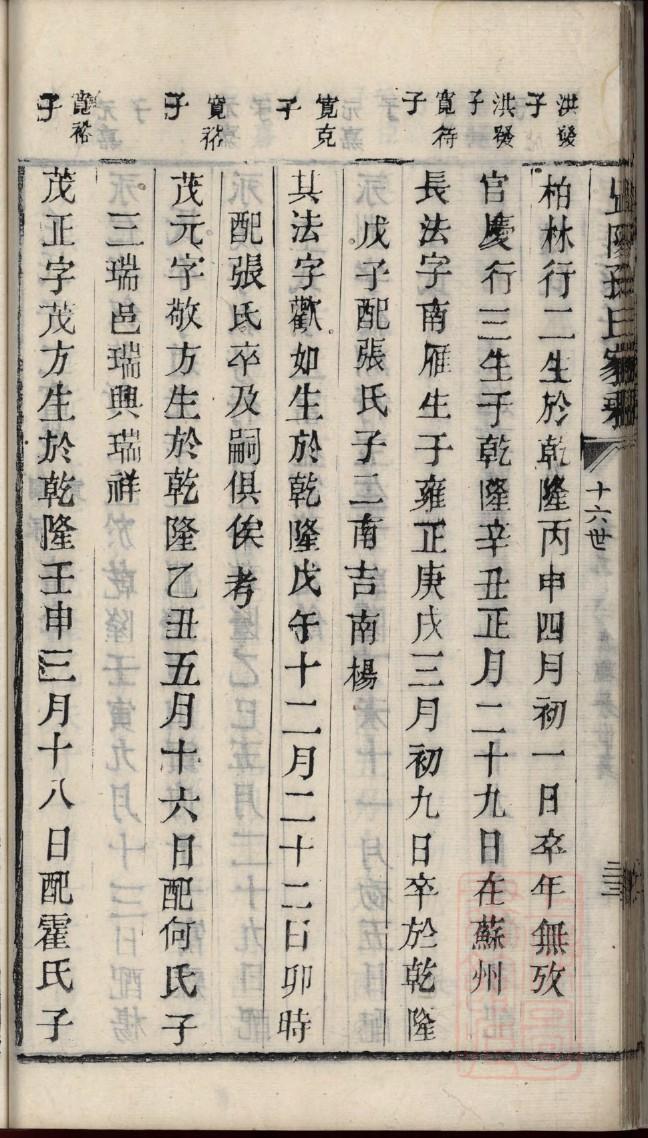 孫氏家乘
十六世
洪發子
柏林行二生於乾隆丙申四月初一日卒年無攷
洪發子
官慶行三生于乾隆辛丑正月二十九日在蘇州
寬符子
長法字南雁生于雍正庚戌三月初九日卒於乾隆
戊子配張氏子二南吉南楊
寬克子
其法字歡如生於乾隆戊午十二月二十二日卯時
配張氏卒及嗣俱俟考
寬裕子
茂元字敬方生於乾隆乙丑五月十六日配何氏子
三瑞邑瑞興瑞祥
寬裕子
茂正字茂方生於乾隆壬申三月十八日配霍氏子